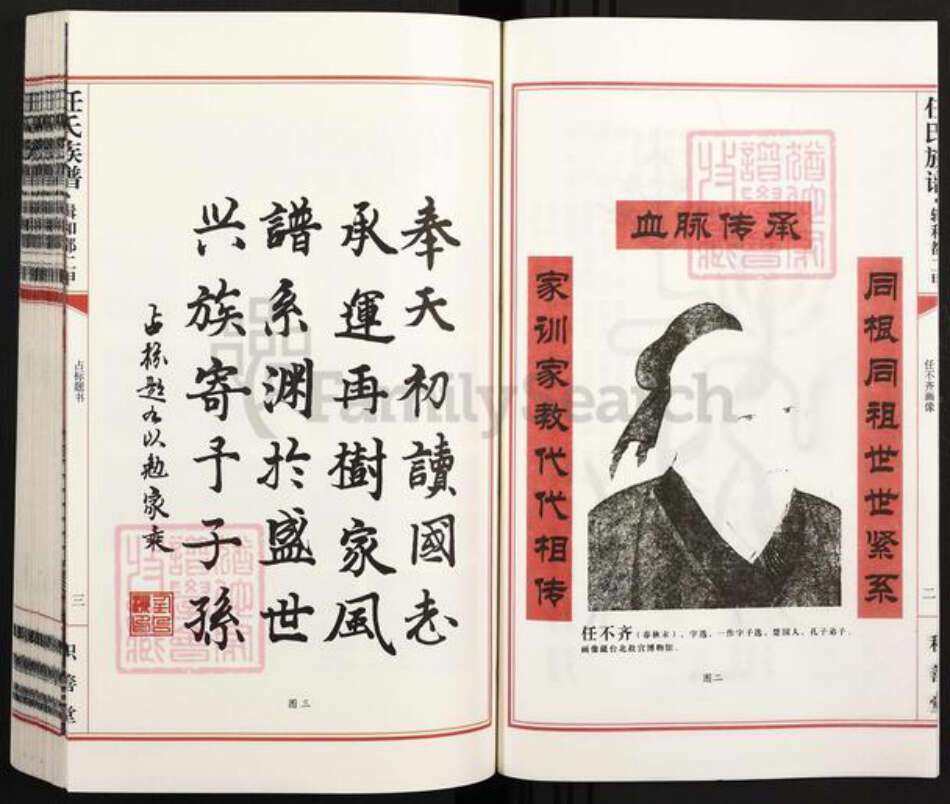 任氏族谱·辑和都二甲
任不齐画像
二
血脉传承
同根同祖世世紧系
家训家教代代相传
任不齐（春秋末），字选，一作子选，楚国人，孔子弟子。
画像藏台北故宫博物馆。
图二
任氏族谱·辑和都二甲
占标题书
三
积善堂
奉天初讀國志
承運再樹家風
譜系渊於盛世
兴族寄予子孫
占标题书以勉家乘
图三
FamilySearch